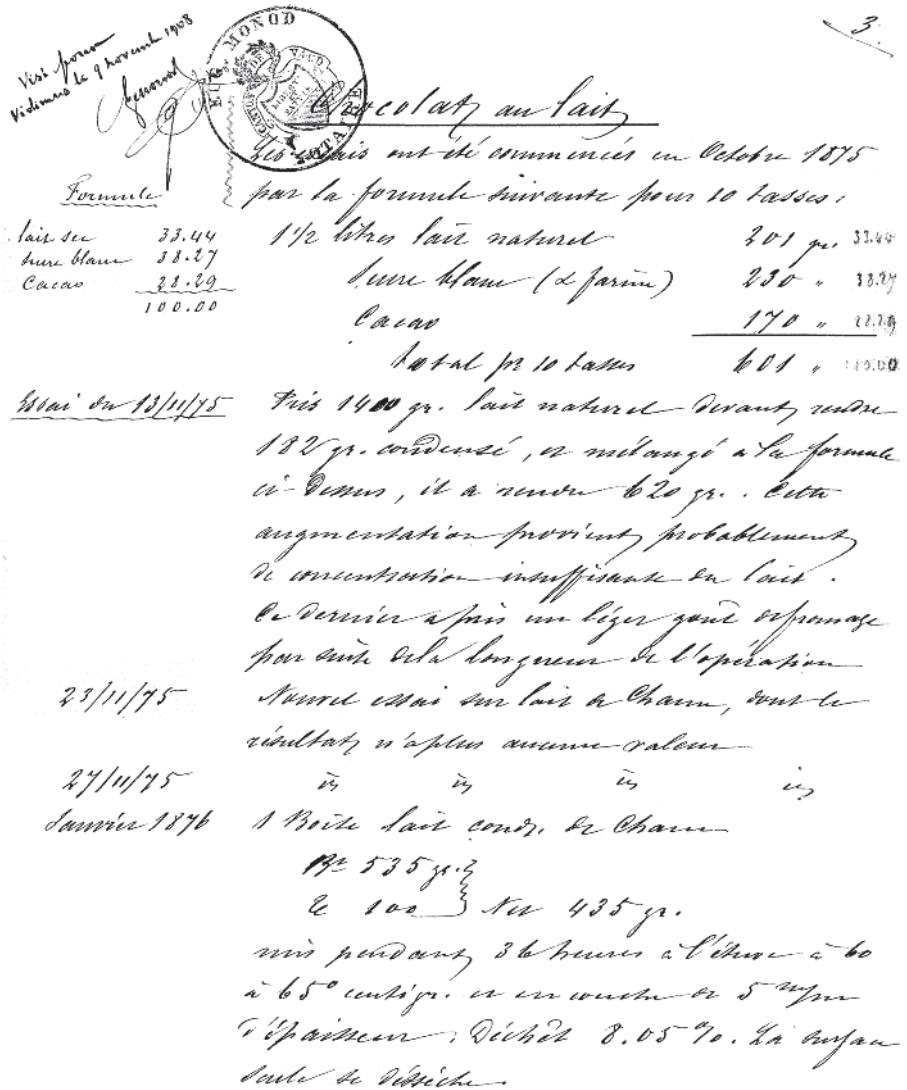 3.
Visé pour
Vidimus le 9 novembre 1908
MONOD
NOTAIRE
CANTON DE VAUD
Chocolat au lait
Les essais ont été commencés en Octobre 1875
par la formule suivante pour 10 tasses :
Formule
lait sec 33.44
sucre blanc 38.27
Cacao 28.29
100.00
1 1/2 litres lait naturel 201 gr. 33.44
Sucre blanc (d farine) 230 " 38.27
Cacao 170 " 28.29
Total pr 10 tasses 601 " 100.00
Essai du 13/11/75 Pris 1400 gr. lait naturel devant rendre
182 gr. condensé, et mélangé à la formule
ci-dessus, il a rendu 620 gr.. Cette
augmentation provient probablement
de concentration insuffisante du lait.
Ce dernier a pris un léger goût de fromage
par suite de la longueur de l'opération
23/11/75 Nouvel essai sur lait de Cham, dont le
résultat n'a plus aucune valeur
27/11/75 id id id id
Janvier 1876 1 Boîte lait cond. de Cham
Bt 535 gr. }
Te 100 } Net 435 gr.
mis pendant 36 heures à l'étuve à 60
à 65° centigr. et en couche de 5 m/m
d'épaisseur. Déchêt 8.05 %. La surface
seule se dessèche.